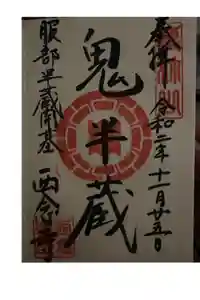 奉拝
令和二年十一月廿五日
鬼半蔵
服部半蔵開基
西念寺